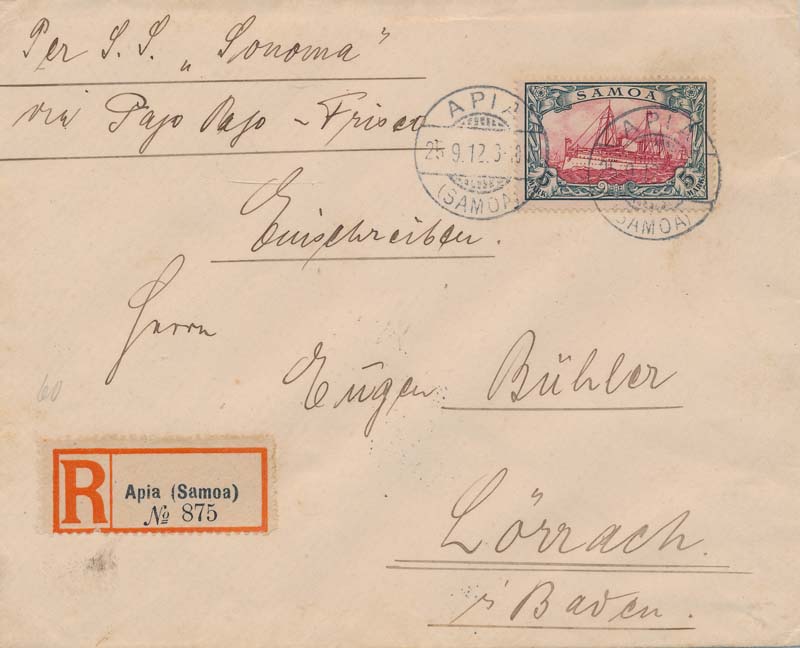 Per S.S. „Sonoma"
via Pago Pago - Frisco
SAMOA
5 MARK
5 MARK
APIA
25 9.12.
(SAMOA)
APIA
(SAMOA)
Einschreiben.
Herrn
Eugen Bühler
60
R Apia (Samoa)
№ 875
Lörrach.
i/Baden.